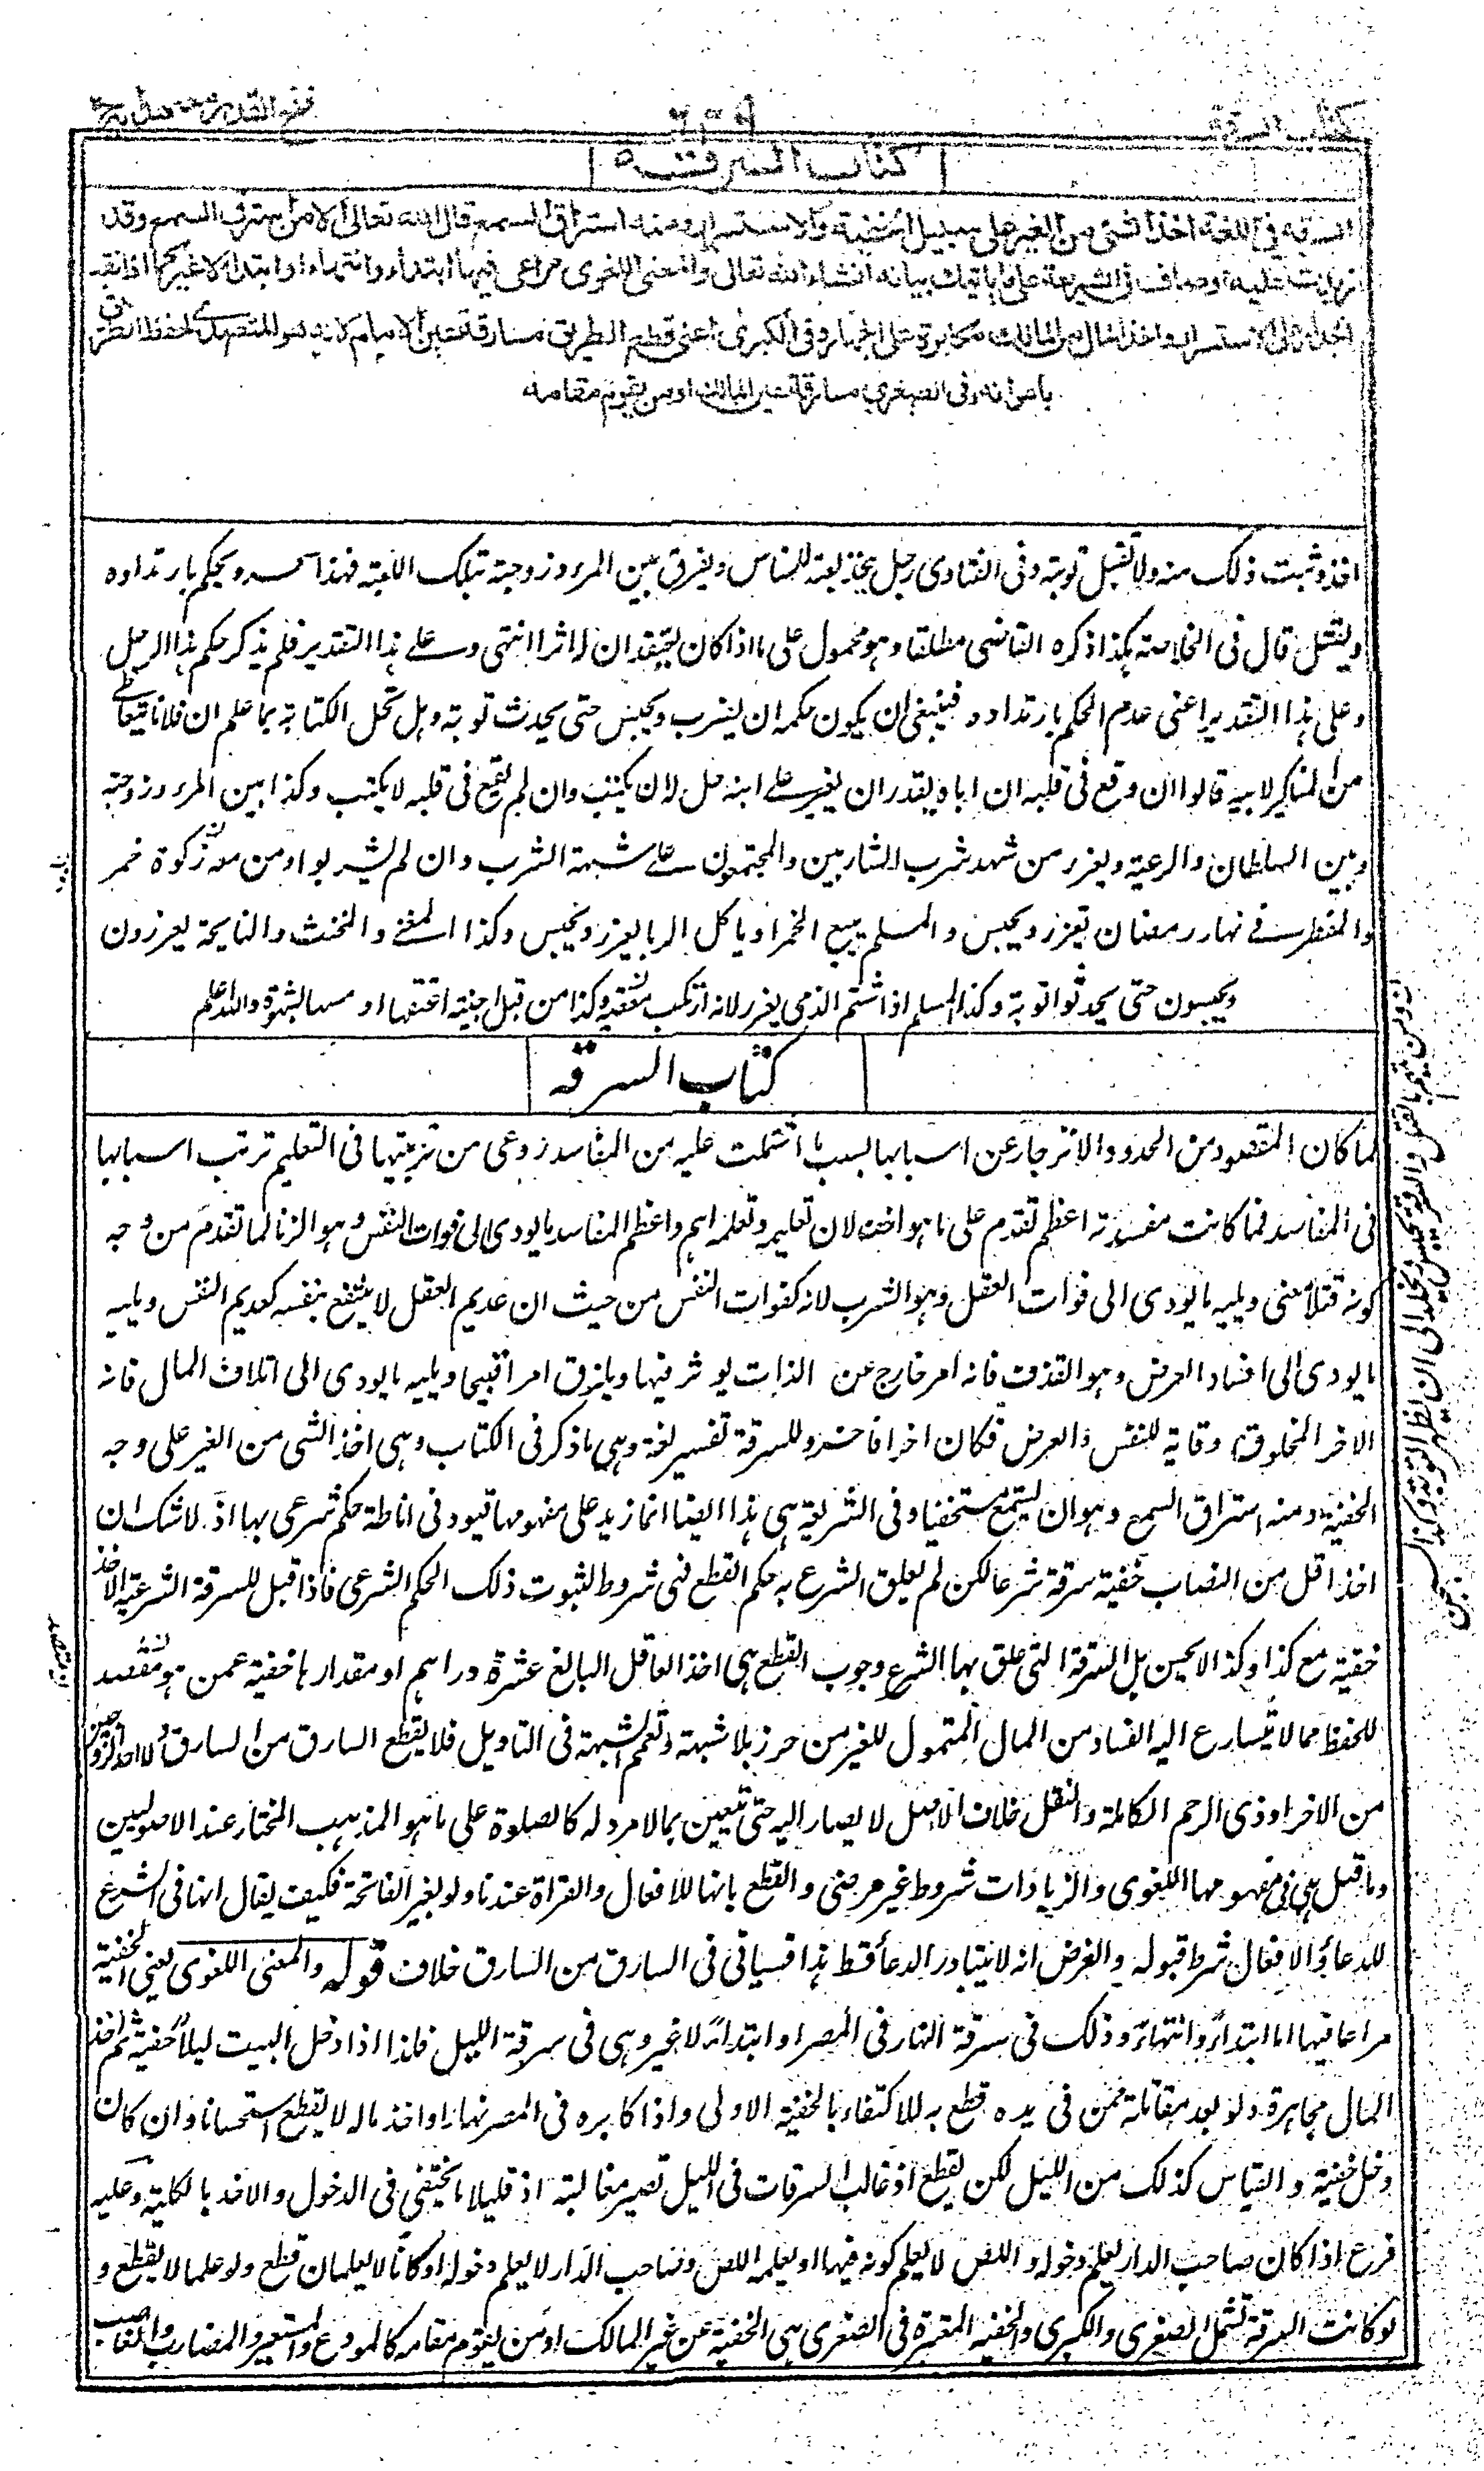 كتاب السرقة
٢١٩
فتح القدير مع هداية ج
كتاب السرقة
السرقة في اللغة اخذ الشئ من الغير على سبيل الخفية والاستسرار ومنه استراق السمع قال الله تعالى الا من استرق السمع وقد
زيدت عليه اوصاف في الشريعة على ما ياتيك بيانه انشاء الله تعالى والمعنى اللغوي مراعى فيها ابتداء وانتهاء او ابتداء لا غير كما اذا نقب
الجدار على الاستسرار واخذ المال من المالك مكابرة على الجهار وفي الكبرى اعني قطع الطريق مسارقة عين الامام لانه هو المتصدي لحفظ الطريق
باعوانه وفي الصغرى مسارقة عين المالك او من يقوم مقامه
اخذ وثبت ذلك منه ولا تقبل توبته وفي الفتاوى رجل يتخذ لعبة للناس ويفرق بين المرء وزوجته بتلك اللعبة فهذا سحر ويحكم بارتداده
ويقتل قال في الخلاصة هكذا ذكره القاضي مطلقا وهو محمول على ما اذا كان يعتقد ان له اثرا انتهى وعلى هذا التقدير فلم يذكر حكم هذا الرجل
وعلى هذا التقدير اعني عدم الحكم بارتداده فينبغي ان يكون حكمه ان يضرب ويحبس حتى يحدث توبة وهل تحل الكتابة بما علم ان فلانا يتعاطى
من المناكير لابيه قالوا ان وقع في قلبه ان اباه يقدر ان يغير على ابنه حل له ان يكتب وان لم يقع في قلبه لا يكتب وكذا بين المرء وزوجته
وبين السلطان والرعية ويعزر من شهد شرب الشاربين والمجتمعون على شبهة الشرب وان لم يشربوا ومن معه ركوة خمر
والمفطر في نهار رمضان يعزر ويحبس والمسلم يبيع الخمر او ياكل الربا يعزر ويحبس وكذا المغني والمخنث والنايحة يعزرون
ويحبسون حتى يحدثوا توبة وكذا المسلم اذا شتم الذمي يعزر لانه ارتكب معصية وكذا من قبل اجنبية او عانقها او مسها بشهوة والله اعلم
كتاب السرقة
لما كان المقصود من الحدود الانزجار عن اسبابها بسبب ما اشتملت عليه من المفاسد روعي من ترتيبها في التعليم ترتب اسبابها
في المفاسد فما كانت مفسدته اعظم تقدم على ما هو اخف لان تعليمه وتعلمه اهم واعظم المفاسد ما يودي الى فوات النفس وهو الزنا لما تقدم من وجه
كونه قتلا معنى ويليه ما يودي الى فوات العقل وهو الشرب لانه كفوات النفس من حيث ان عديم العقل لا ينتفع بنفسه كعديم النفس ويليه
ما يودي الى افساد العرض وهو القذف فانه امر خارج عن الذات يوثر فيها ويلزق امرا قبيحا ويليه ما يودي الى اتلاف المال فانه
الاخر المخلوق وقاية للنفس والعرض فكان اخرا فاخره وللسرقة تفسير لغة وهي ما ذكر في الكتاب وهي اخذ الشئ من الغير على وجه
الخفية ومنه استراق السمع وهو ان يستمع مستخفيا وفي الشريعة هي هذا ايضا انما زيد على مفهومها قيود في اناطة حكم شرعي بها اذ لا شك ان
اخذ اقل من النصاب خفية سرقة شرعا لكن لم يعلق الشرع به حكم القطع فهي شروط لثبوت ذلك الحكم الشرعي فاذا قيل للسرقة الشرعية الاخذ
خفية مع كذا وكذا لا يحسن بل السرقة التي علق بها الشرع وجوب القطع هي اخذ العاقل البالغ عشرة دراهم او مقدارها خفية عمن هو مقصد
للحفظ مما لا يتسارع اليه الفساد من المال المتمول للغير من حرز بلا شبهة وتعمم الشبهة في التاويل فلا يقطع السارق من السارق ولا احد الزوجين
من الاخر او ذي الرحم الكاملة والنقل خلاف الاصل لا يصار اليه حتى يتعين بما لا مرد له كالصلوة على ما هو المذهب المختار عند الاصوليين
وما قيل هي في مفهومها اللغوي والزيادات شروط غير مرضي والقطع بانها للافعال والقراة عندنا ولو بغير الفاتحة فكيف يقال انها في الشرع
للدعاء والافعال شرط قبوله والفرض انه لا يتبادر الدعاء قط هذا فسياتي في السارق من السارق خلاف قوله والمعنى اللغوي يعني الخفية
مراعا فيها اما ابتداء وانتهاء وذلك في سرقة النهار في المصر او ابتداء لا غير وهي في سرقة الليل فلذا اذا دخل البيت ليلا خفية ثم اخذ
المال مجاهرة ولو بعد مقاتلة ممن في يده قطع به للاكتفاء بالخفية الاولى واذا كابره في المصر نهارا واخذ ماله لا يقطع استحسانا وان كان
دخل خفية والقياس كذلك من الليل لكن يقطع اذ غالب السرقات في الليل تصير مغالبة اذ قليلا ما يختفي في الدخول والاخذ بالكلية وعليه
فرع اذا كان صاحب الدار يعلم دخوله واللص لا يعلم كونه فيها او يعلمه اللص وصاحب الدار لا يعلم دخوله او كانا لا يعلمان قطع ولو علما لا يقطع و
لو كانت السرقة تشمل الصغرى والكبرى والخفية المعتبرة في الصغرى هي الخفية عن غير المالك او من يقوم مقامه كالمودع والمستعير والمضارب والغاصب